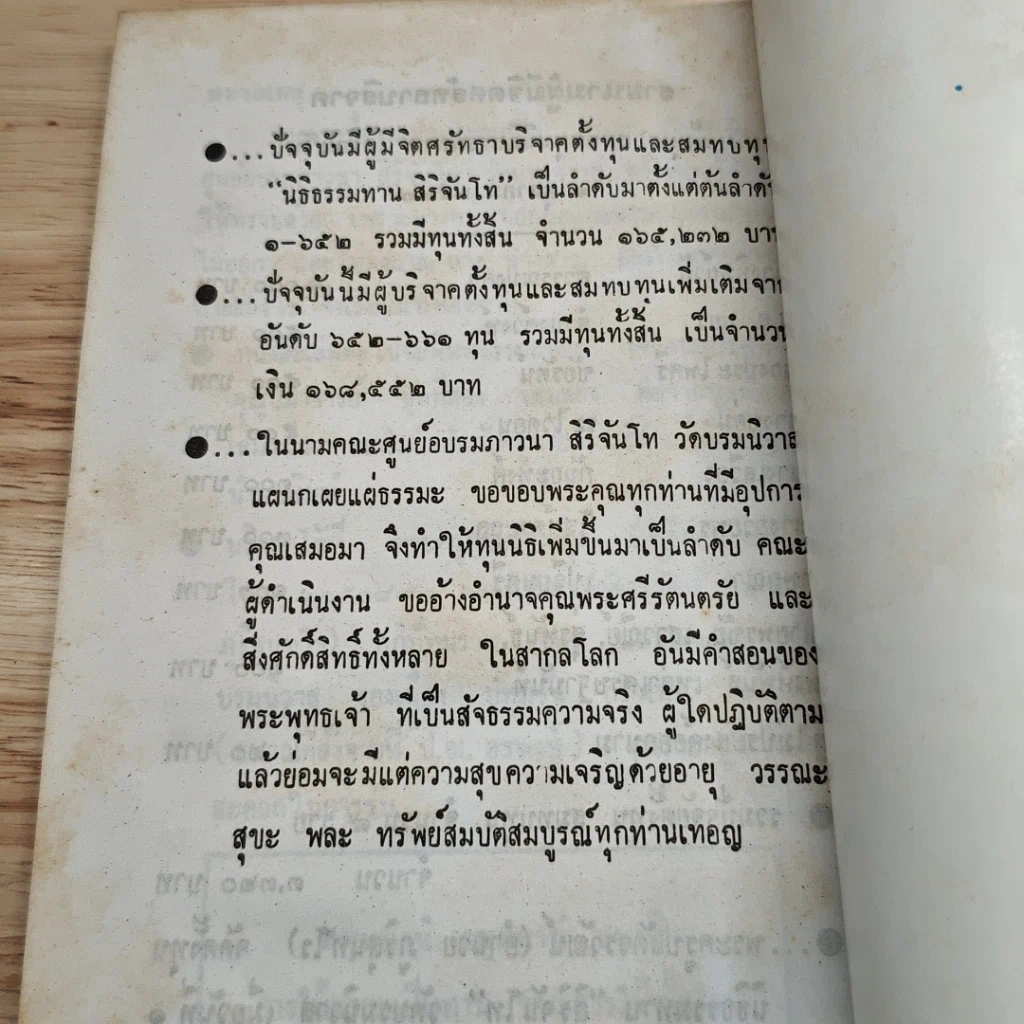 ●...ปัจจุบันมีผู้มีจิตศรัทธาบริจาคตั้งทุนและสมทบทุน
“นิธิธรรมทาน สิริจันโท” เป็นลำดับมาตั้งแต่ต้นลำดับ
๑-๖๕๒ รวมมีทุนทั้งสิ้น จำนวน ๑๖๕,๒๓๒ บาท
●...ปัจจุบันนี้มีผู้บริจาคตั้งทุนและสมทบทุนเพิ่มเติมจาก
อันดับ ๖๕๒-๖๖๑ ทุน รวมมีทุนทั้งสิ้น เป็นจำนวน
เงิน ๑๖๘,๕๕๒ บาท
●...ในนามคณะศูนย์อบรมภาวนา สิริจันโท วัดบรมนิวาส
แผนกเผยแผ่ธรรมะ ขอขอบพระคุณทุกท่านที่มีอุปการ
คุณเสมอมา จึงทำให้ทุนนิธิเพิ่มขึ้นมาเป็นลำดับ คณะ
ผู้ดำเนินงาน ขออ้างอำนาจคุณพระศรีรัตนตรัย และ
สิ่งศักดิ์สิทธิ์ทั้งหลาย ในสากลโลก อันมีคำสอนของ
พระพุทธเจ้า ที่เป็นสัจธรรมความจริง ผู้ใดปฏิบัติตาม
แล้วย่อมจะมีแต่ความสุขความเจริญด้วยอายุ วรรณะ
สุขะ พละ ทรัพย์สมบัติสมบูรณ์ทุกท่านเทอญ